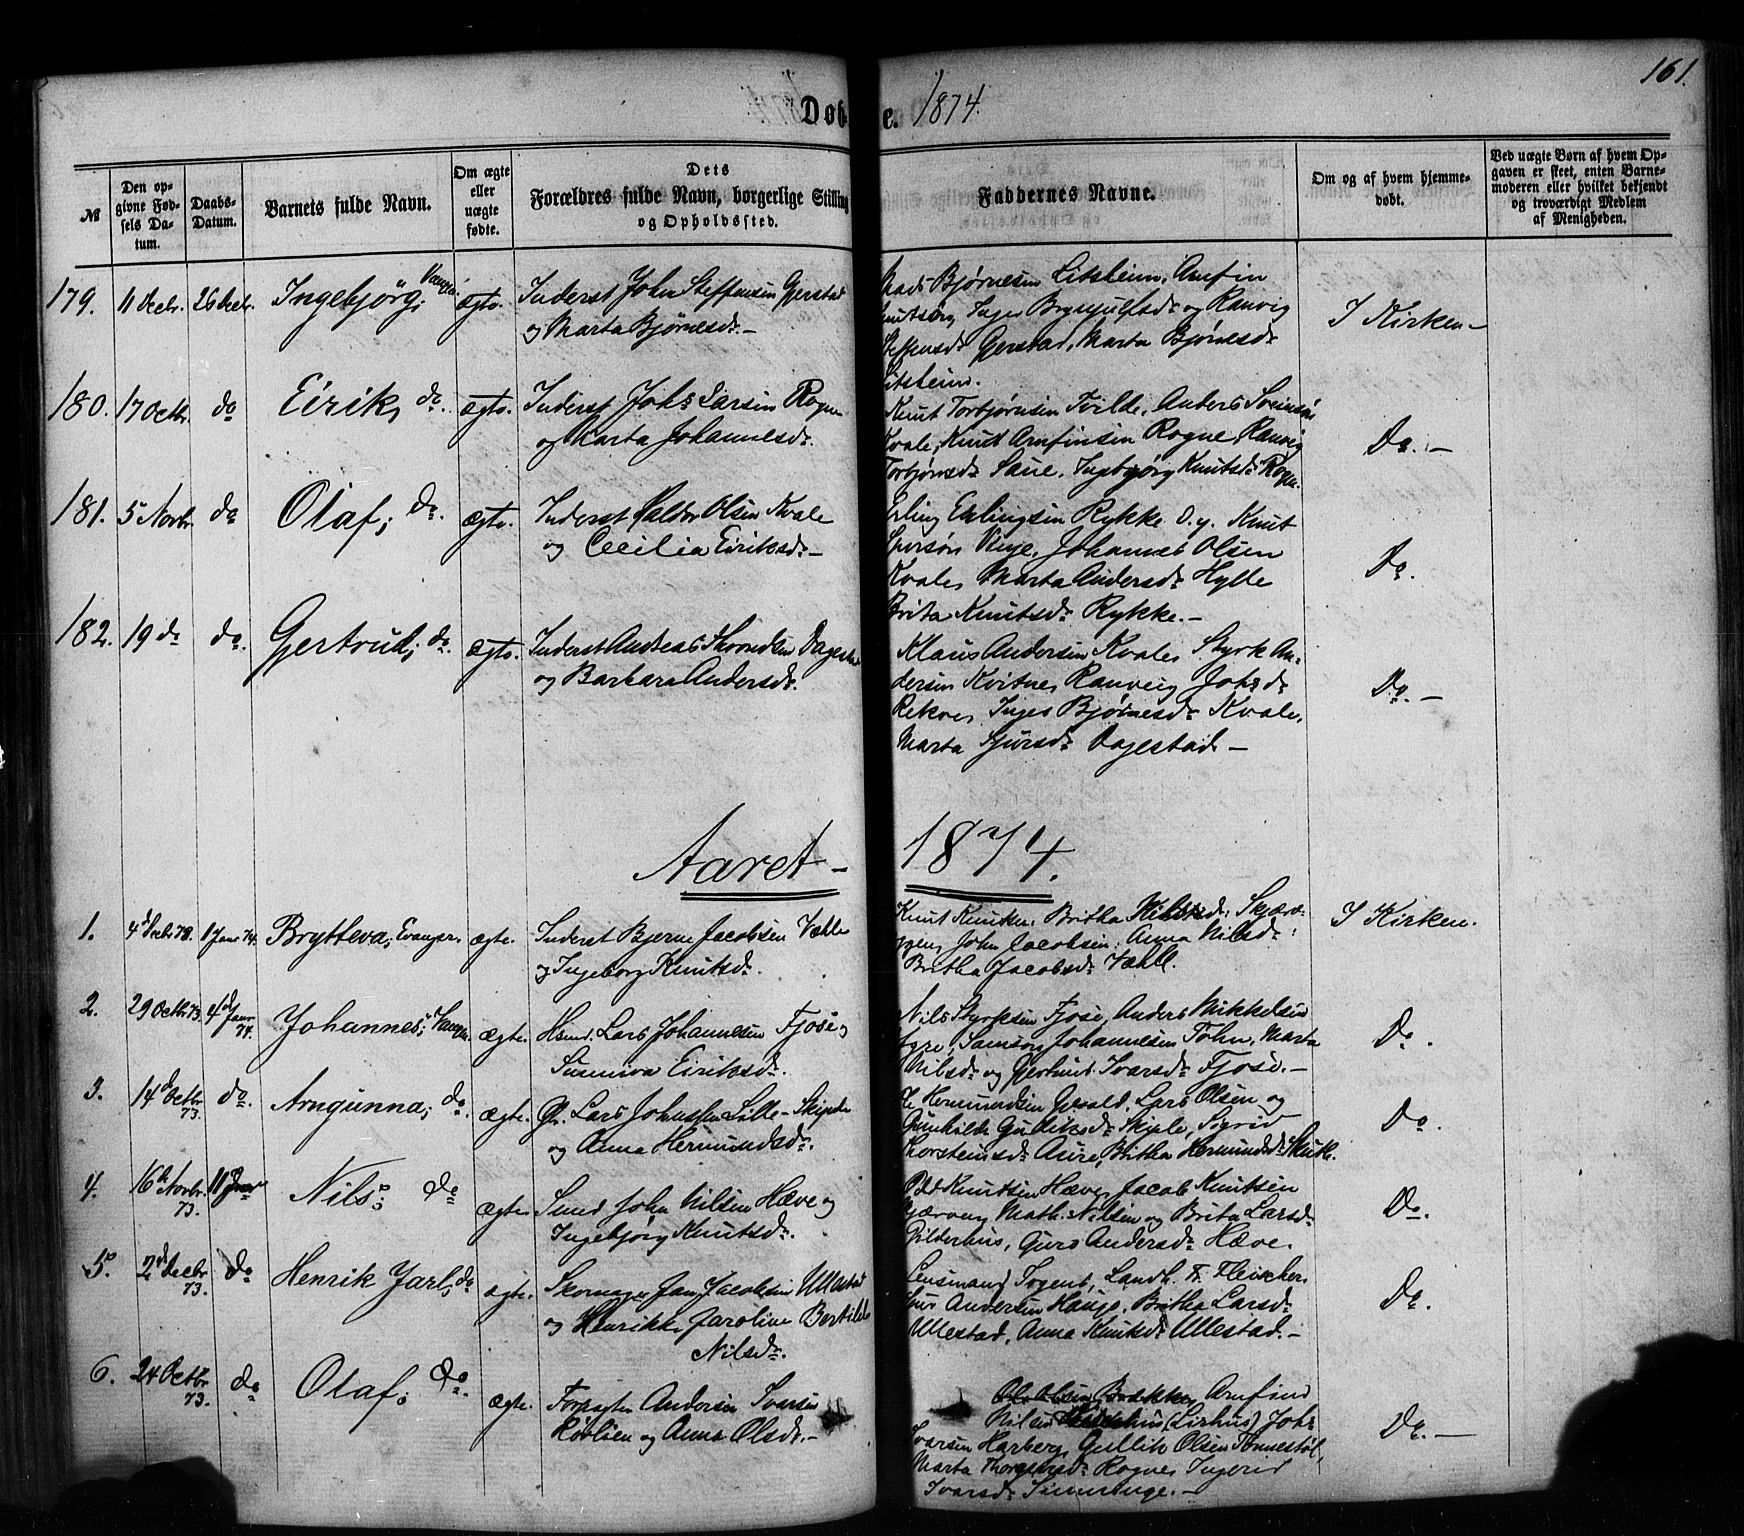 161.
Døb
e. 1874.
№
Den op-
givne Fød-
sels Da-
tum.
Daabs-
Datum.
Barnets fulde Navn.
Om ægte
eller
uægte
fødte.
Dets
Forældres fulde Navn, borgerlige Stilling
og Opholdssted.
Faddernes Navne.
Om og af hvem hjemme-
døbt.
Ved uægte Børn af hvem Op-
gaven er skeet, enten Barne-
moderen eller hvilket bekjendt
og troværdigt Medlem
af Menigheden.
179. 11 Decbr. 26 Decbr. Ingebjørg, Vangen. ægte. Inderst John Steffensen Gjerstad
og Marta Bjørnesdr.
Mads Bjørnesen Litsheim, Arnfin
Knutsen, Inger Brynjulfsdr og Ranvig
Steffensdr Gjerstad, Marta Bjørnesdr
Litsheim.
I Kirken
180. 17 Octbr. do Eirik, do. ægte. Inderst Johs Larsen Rogne
og Marta Johannesdr.
Knut Torbjørnsen Tvilde, Anders Sveinsen
Kvale, Knut Arnfinsen Rogne, Ranvig
Torbjørnsdr Saue, Ingebjørg Knutsdr Rogne.
Do.
181. 5 Novbr. do Olaf, do. ægte. Inderst Haldor Olsen Kvale
og Cecilia Eiriksdr
Erling Erlingsen Rykke d.y. Knut
Sjursøn Vinje, Johannes Olsen
Kvale, Marta Andersdr Hylle
Brita Knutsdr Rykke.
Do.
182. 19 do do. Gjertrud, do. ægte. Inderst Andreas Thorndsen Dagestad
og Barbara Andersdr.
Klaus Andersen Kvale, Styrk An-
dersen Kvitne, Ranveig Johsdr
Rekve, Inger Bjørnesdr Kvale,
Marta Sjursdr Dagestad
Do.
Aaret
1874.
1. 4d Decbr 73. 1 Janr 74. Brytteva, Evanger. ægte. Inderst Bjerne Jacobsen Væhle
og Ingeborg Knutsdr.
Knut Knutsen, Britha Skjær-
John Jacobsen, Anna Nilsdr
Britha Jacobsdr Væhl.
I Kirken.
2. 29 Octbr 73. 4d Janr 74. Johannes, Vangen. ægte. Hsmd. Lars Johannesen Fjose
Sunniva Eiriksdr.
Nils Styrksen Fjose, Anders Mikkelsen
Gjøre, Samson Johannesen Tøhn, Marta
Nilsdr og Gjertrud Ivarsdr Fjose.
Do.
3. 14d Octbr 73. do. Arngunna, do. ægte. Gb. Lars Johnssen Lille-Skiple
og Anna Hermundsdr.
Hermundsen Grvald, Lars Olsen og
Gunhilde Gulliksdr Skiple, Sigrid
Thorsteinsdr Asire, Britha Hermundsdr Skutle.
Do.
4. 16d Novbr. 73. 11 Janr Nils, do ægte. Smed John Nilsen Hæve og
Ingebjørg Knutsdr.
Odd Knutsen Hæve, Jacob Knutsen
Gjærven, Math. Nilsen og Brita Larsdr
Gilderhus, Guro Andersdr Hæve.
Do.
5. 2d Decbr 73. do Henrik Jarl, do ægte. Skomager Jan Jacobsen Ullestad
og Henrikke Jaroline Bertilde
Nilsdr.
Lensmand Sogent, Landh. Fr. Fleischer
Sjur Andersen Hauge, Britha Larsdr
Ullestad, Anna Knutsdr Ullestad.
Do.
6. 24 Octbr 73. do Olaf, do. ægte. Forpagter Andersen Ivarsen
Rovlien og Anna Olsdr.
Ole Olsen Brække, Arnfind
Nilsen (Lirhus) Johs
Ivarsen Harberg, Gullik Olsen Tonnestøl,
Marta Rogne, Ingerid
Ivarsdr
Do.